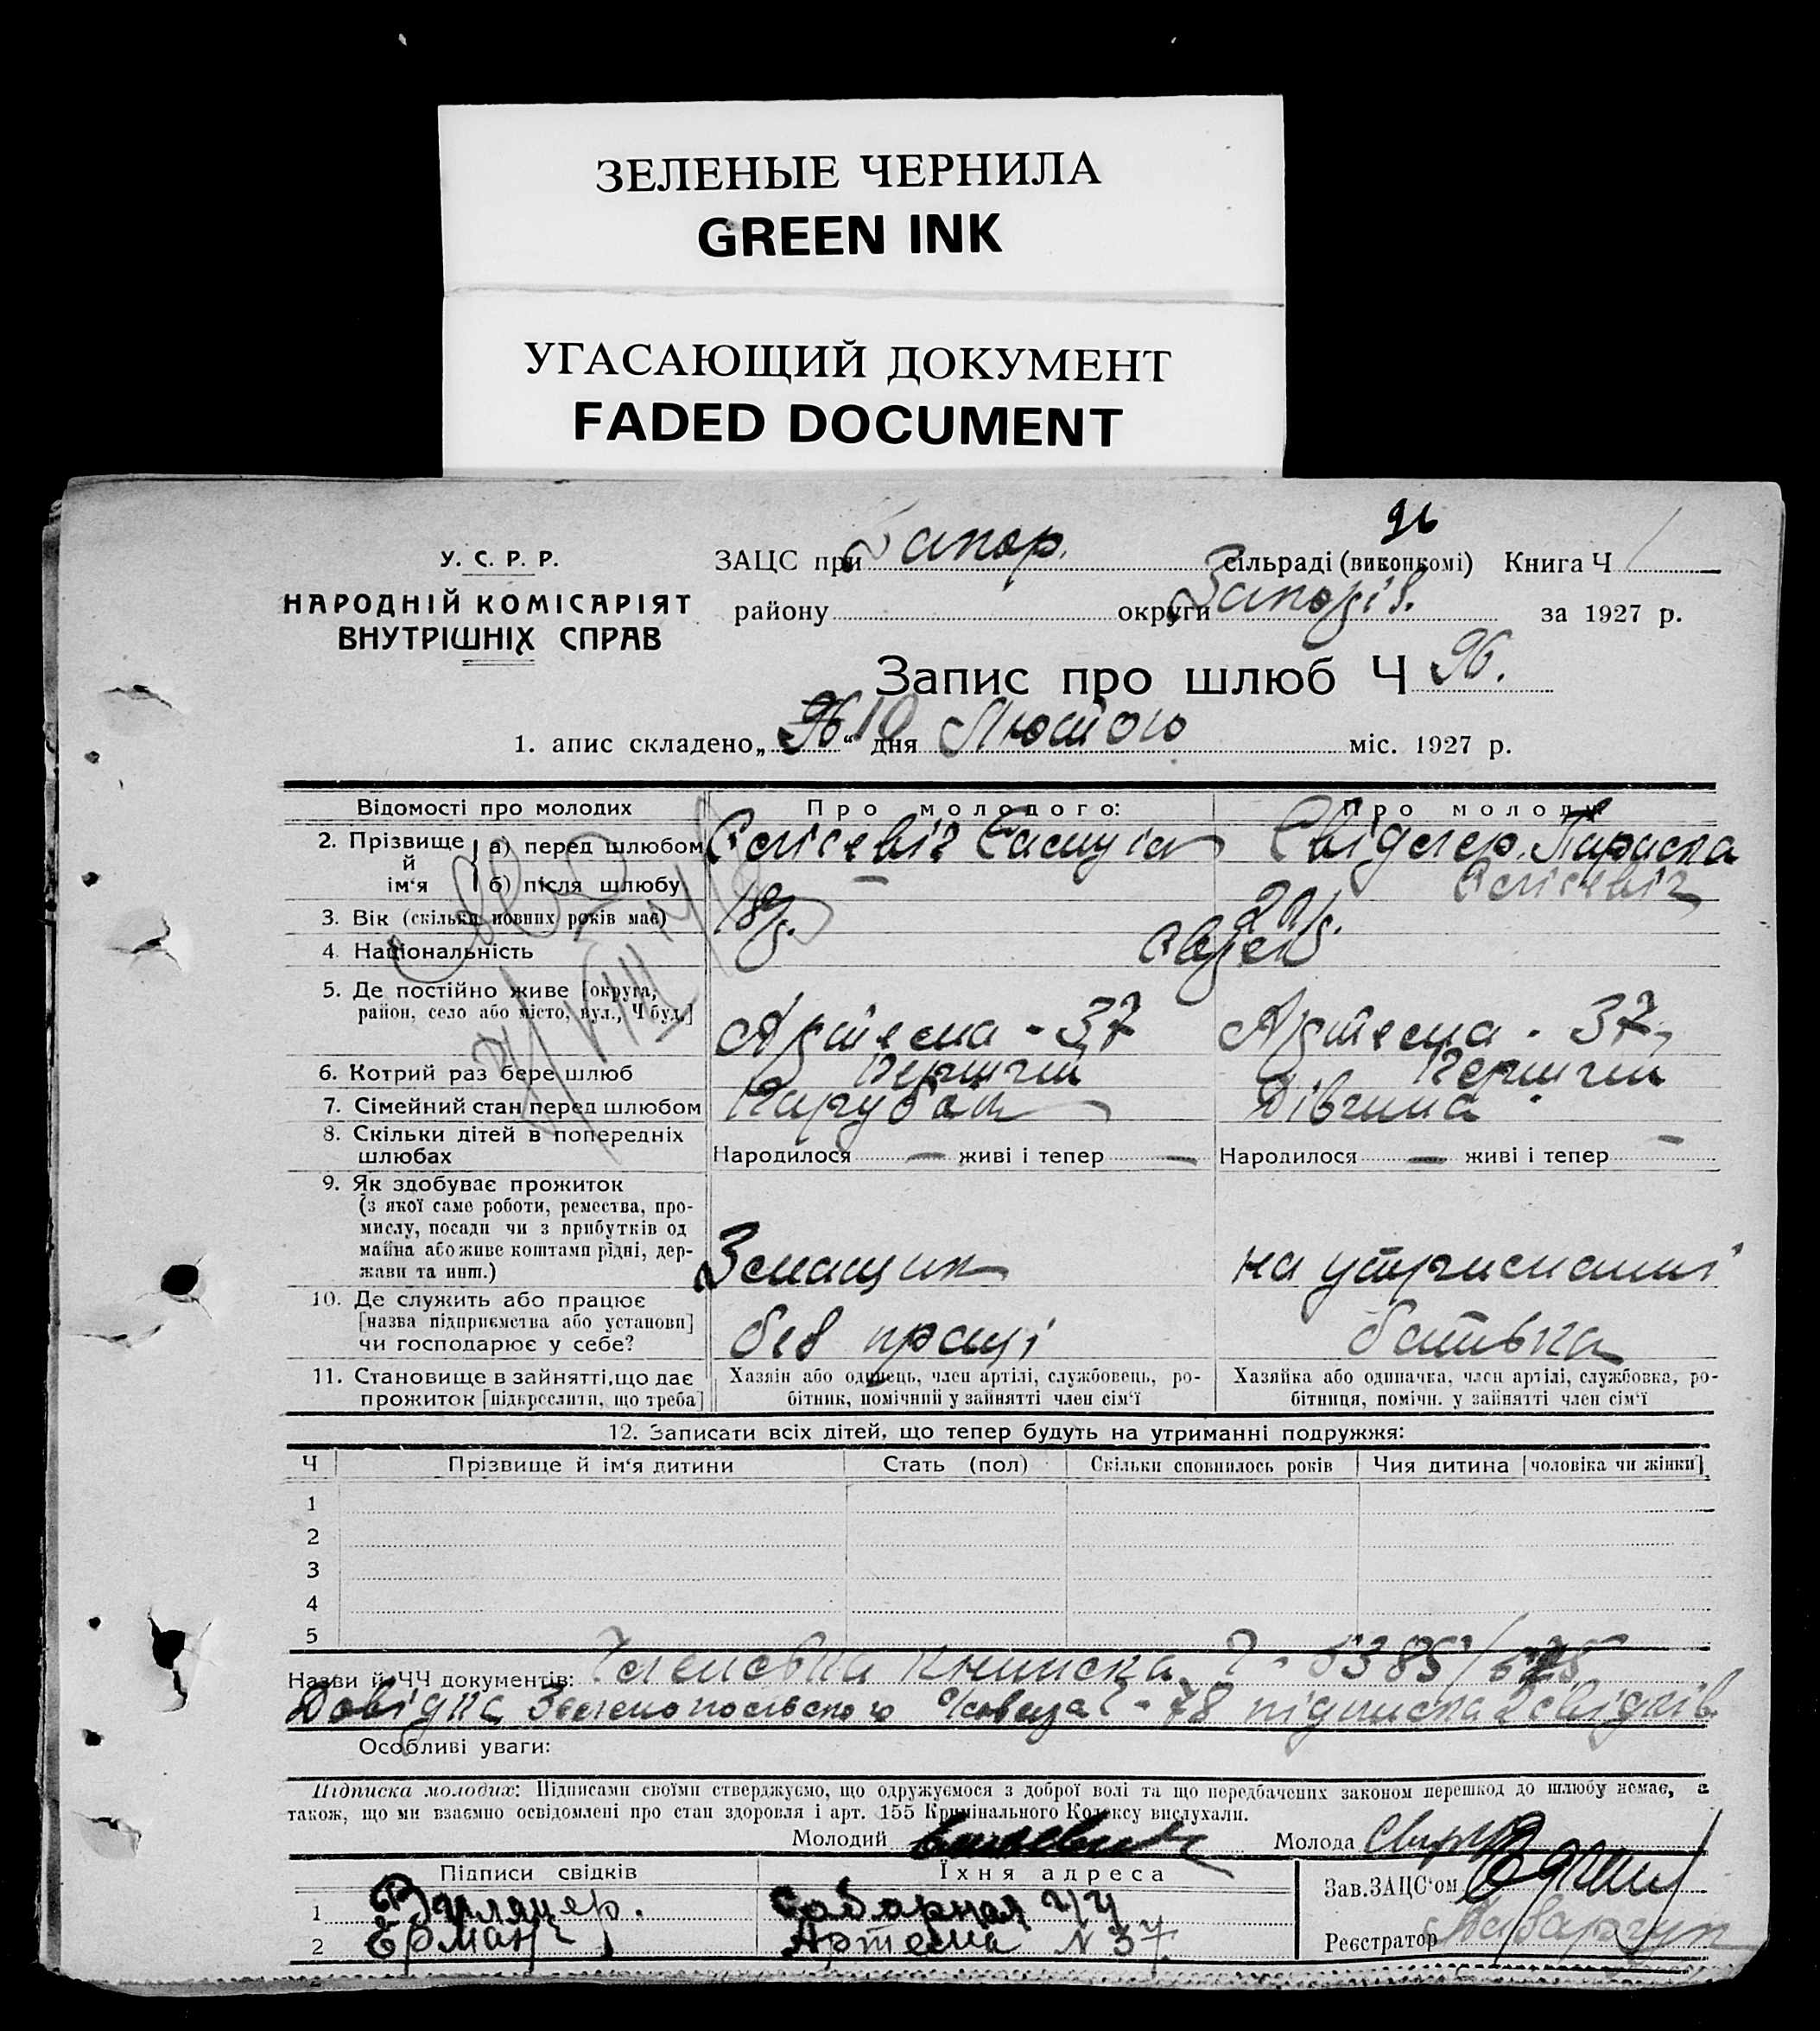 ЗЕЛЕНЫЕ ЧЕРНИЛА
GREEN INK
УГАСАЮЩИЙ ДОКУМЕНТ
FADED DOCUMENT
96
У. С. Р. Р.
НАРОДНІЙ КОМІСАРІЯТ
ВНУТРІШНІХ СПРАВ
ЗАЦС при Запор. сільраді (виконкомі) Книга Ч 1
району округи Запоріз. за 1927 р.
Запис про шлюб Ч 96.
1. апис складено „96 10“ дня Лютого міс. 1927 р.
Відомості про молодих Про молодого: Про молоду
2. Прізвище й ім'я
а) перед шлюбом Свідлер Параска
б) після шлюбу —
3. Вік (скільки повних років має) 18 р. 22 р.
4. Національність Євреї
5. Де постійно живе [округа, район, село або місто, вул., Ч буд.] Артема - 37 Артема - 37
6. Котрий раз бере шлюб Перший Перший
7. Сімейний стан перед шлюбом Парубок Дівчина
8. Скільки дітей в попередніх шлюбах Народилося — живі і тепер — Народилося — живі і тепер —
9. Як здобуває прожиток
(з якої саме роботи, ремества, про-
мислу, посади чи з прибутків од
майна або живе коштами рідні, дер-
жави та инш.) на утриманні
10. Де служить або працює
[назва підприємства або установи]
чи господарює у себе? без праці батька
11. Становище в зайнятті, що дає
прожиток [підкреслити, що треба]
Хазяїн або одинець, член артілі, службовець, ро-
бітник, помічний у зайнятті член сім'ї
Хазяйка або одиначка, член артілі, службовка, ро-
бітниця, помічн. у зайнятті член сім'ї
12. Записати всіх дітей, що тепер будуть на утриманні подружжя:
Ч Прізвище й ім'я дитини Стать (пол) Скільки сповнилось років Чия дитина [чоловіка чи жінки]
1
2
3
4
5
Назви й ЧЧ документів: Членська книжка Ч - 5385/
Довідка Зеленопольського Ч - 78 підписка 2 свідків.
Особливі уваги:
Підписка молодих: Підписами своїми стверджуємо, що одружуємося з доброї волі та що передбачених законом перешкод до шлюбу немає, а
також, що ми взаємно освідомлені про стан здоровля і арт. 155 Кримінального Кодексу вислухали.
Молодий Молода
Підписи свідків Їхня адреса Зав.ЗАЦС'ом
1 Соборная 44
2 Ерман Артема N 37 Реєстратор